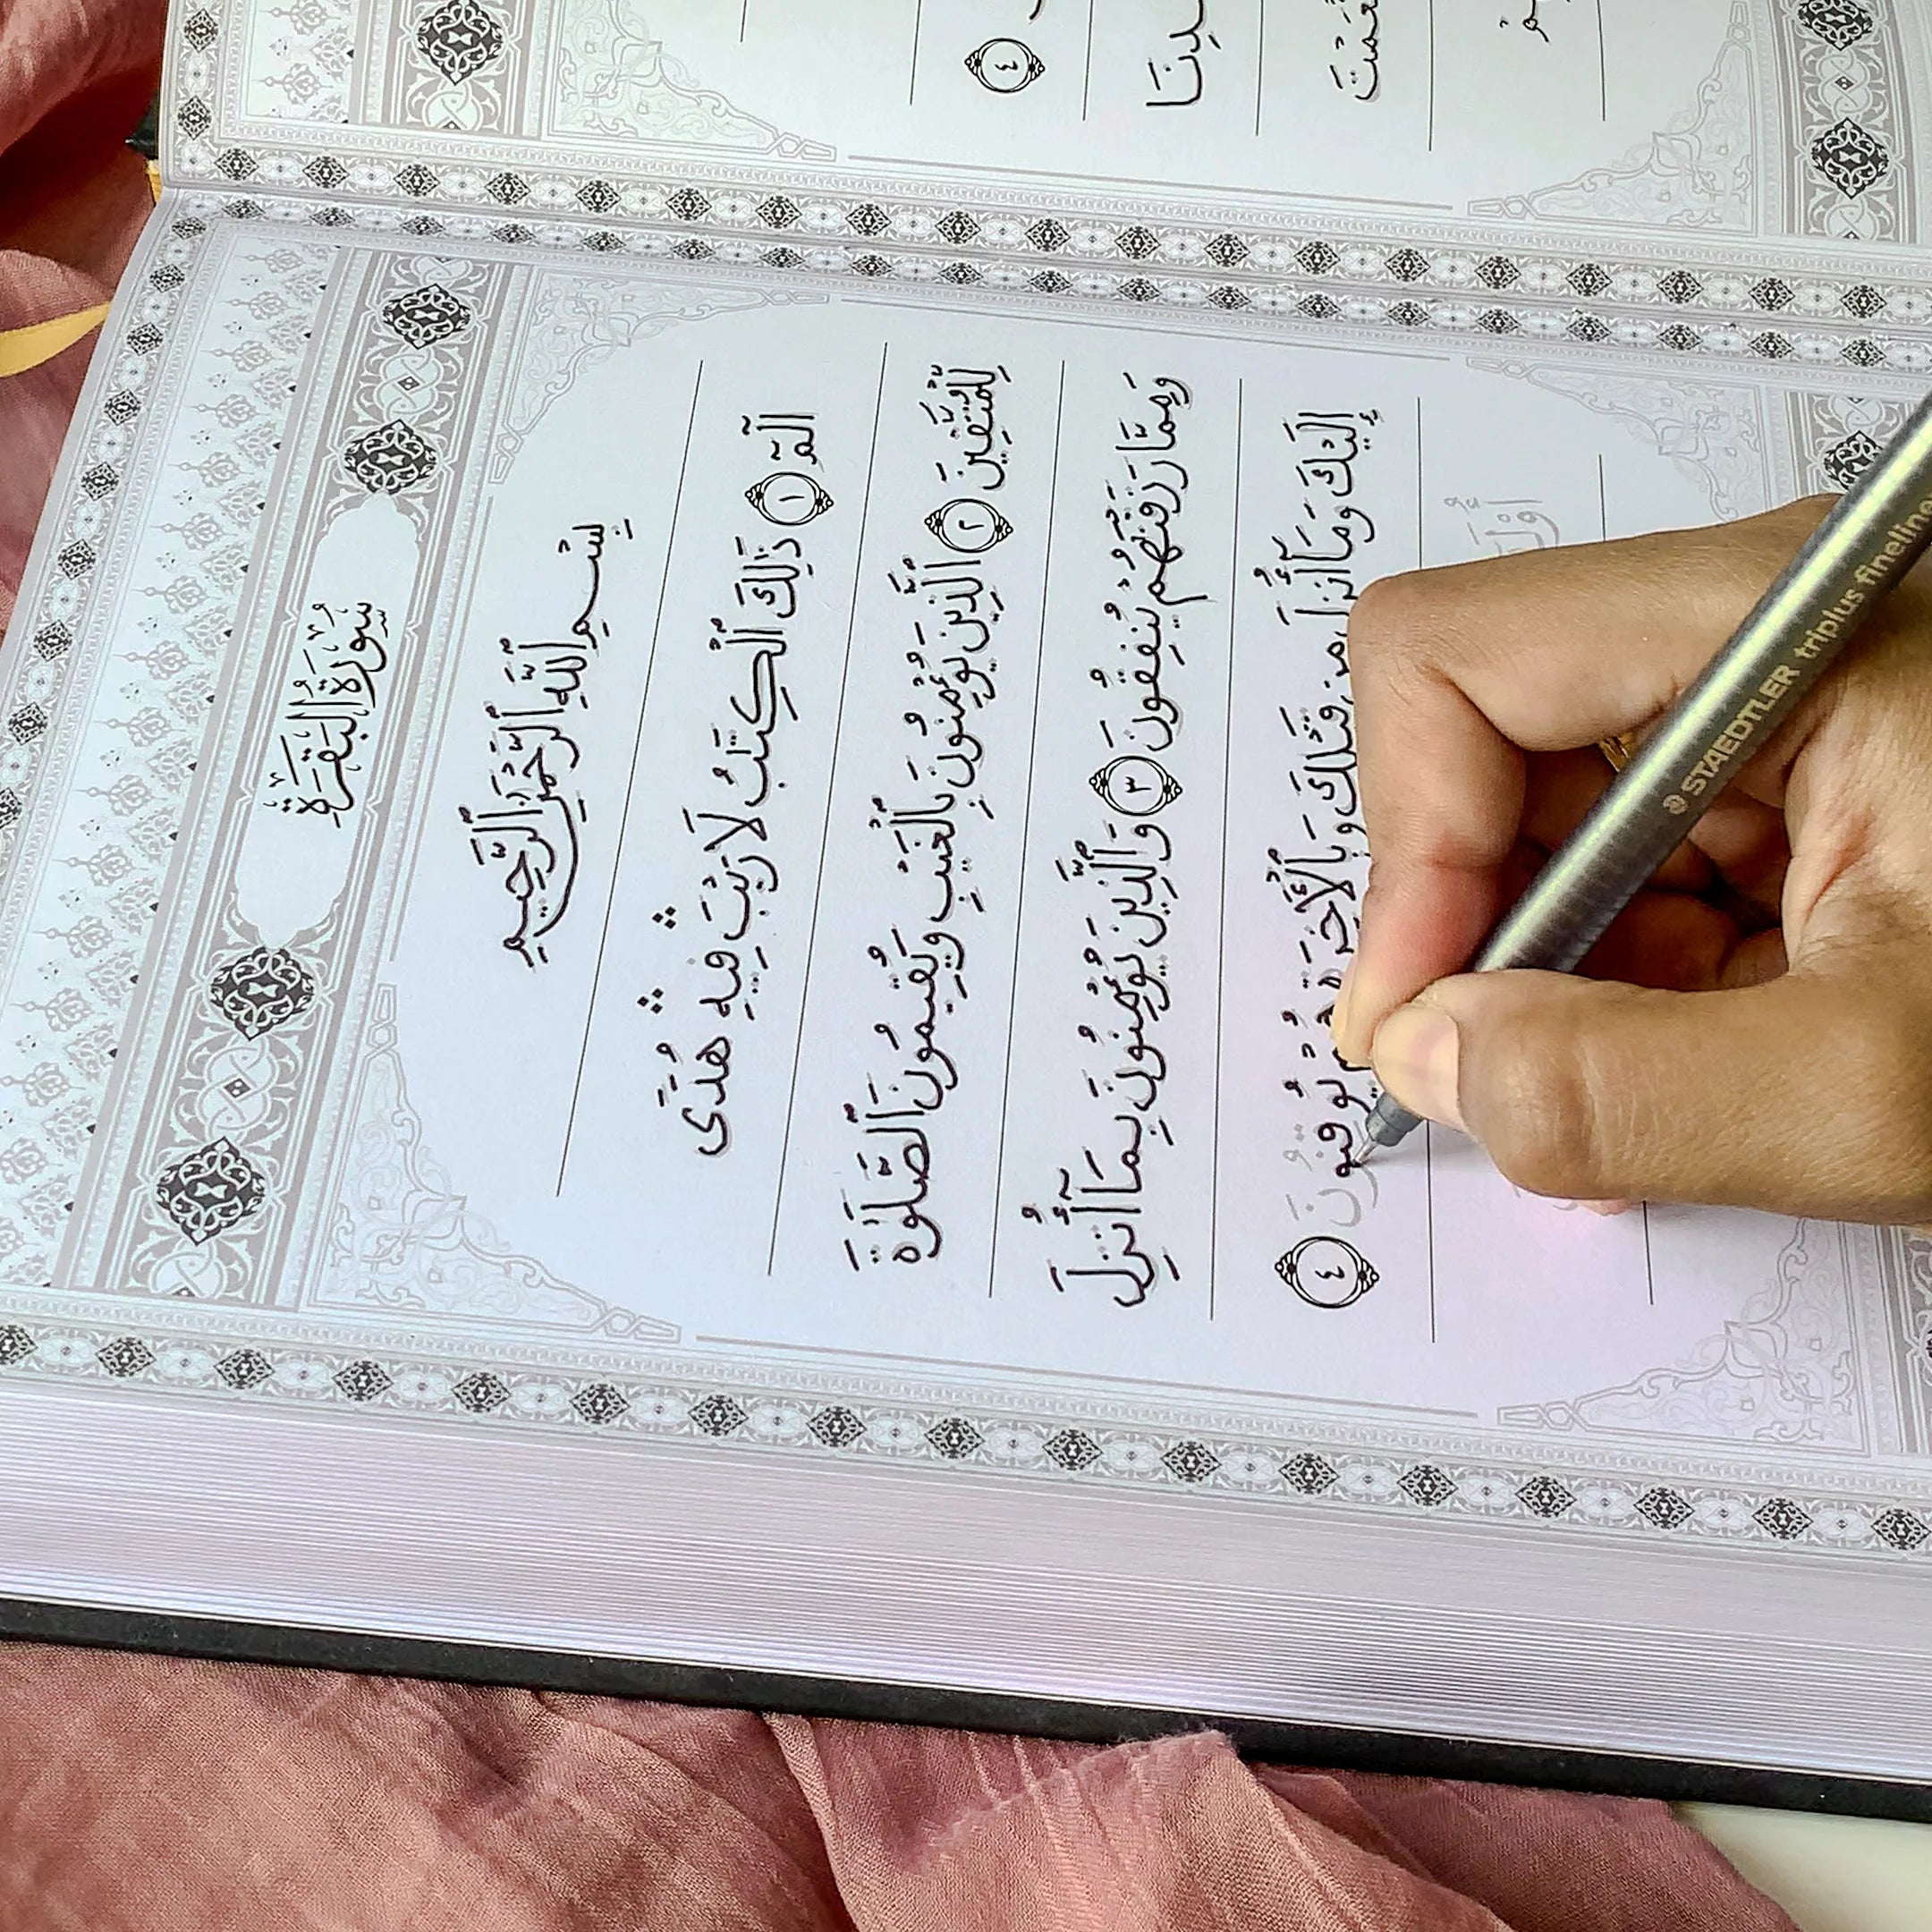 ٤
سُورَةُ البَقَرَةِ
بِسْمِ ٱللَّهِ ٱلرَّحْمَٰنِ ٱلرَّحِيمِ
الٓمٓ ١ ذَٰلِكَ ٱلْكِتَٰبُ لَا رَيْبَ ۛ فِيهِ ۛ هُدًى
لِّلْمُتَّقِينَ ٢ ٱلَّذِينَ يُؤْمِنُونَ بِٱلْغَيْبِ وَيُقِيمُونَ ٱلصَّلَوٰةَ
وَمِمَّا رَزَقْنَٰهُمْ يُنفِقُونَ ٣ وَٱلَّذِينَ يُؤْمِنُونَ بِمَآ أُنزِلَ
إِلَيْكَ وَمَآ أُنزِلَ مِن قَبْلِكَ وَبِٱلْأَخِرَةِ هُمْ يُوقِنُونَ ٤
STAEDTLER triplus fineline